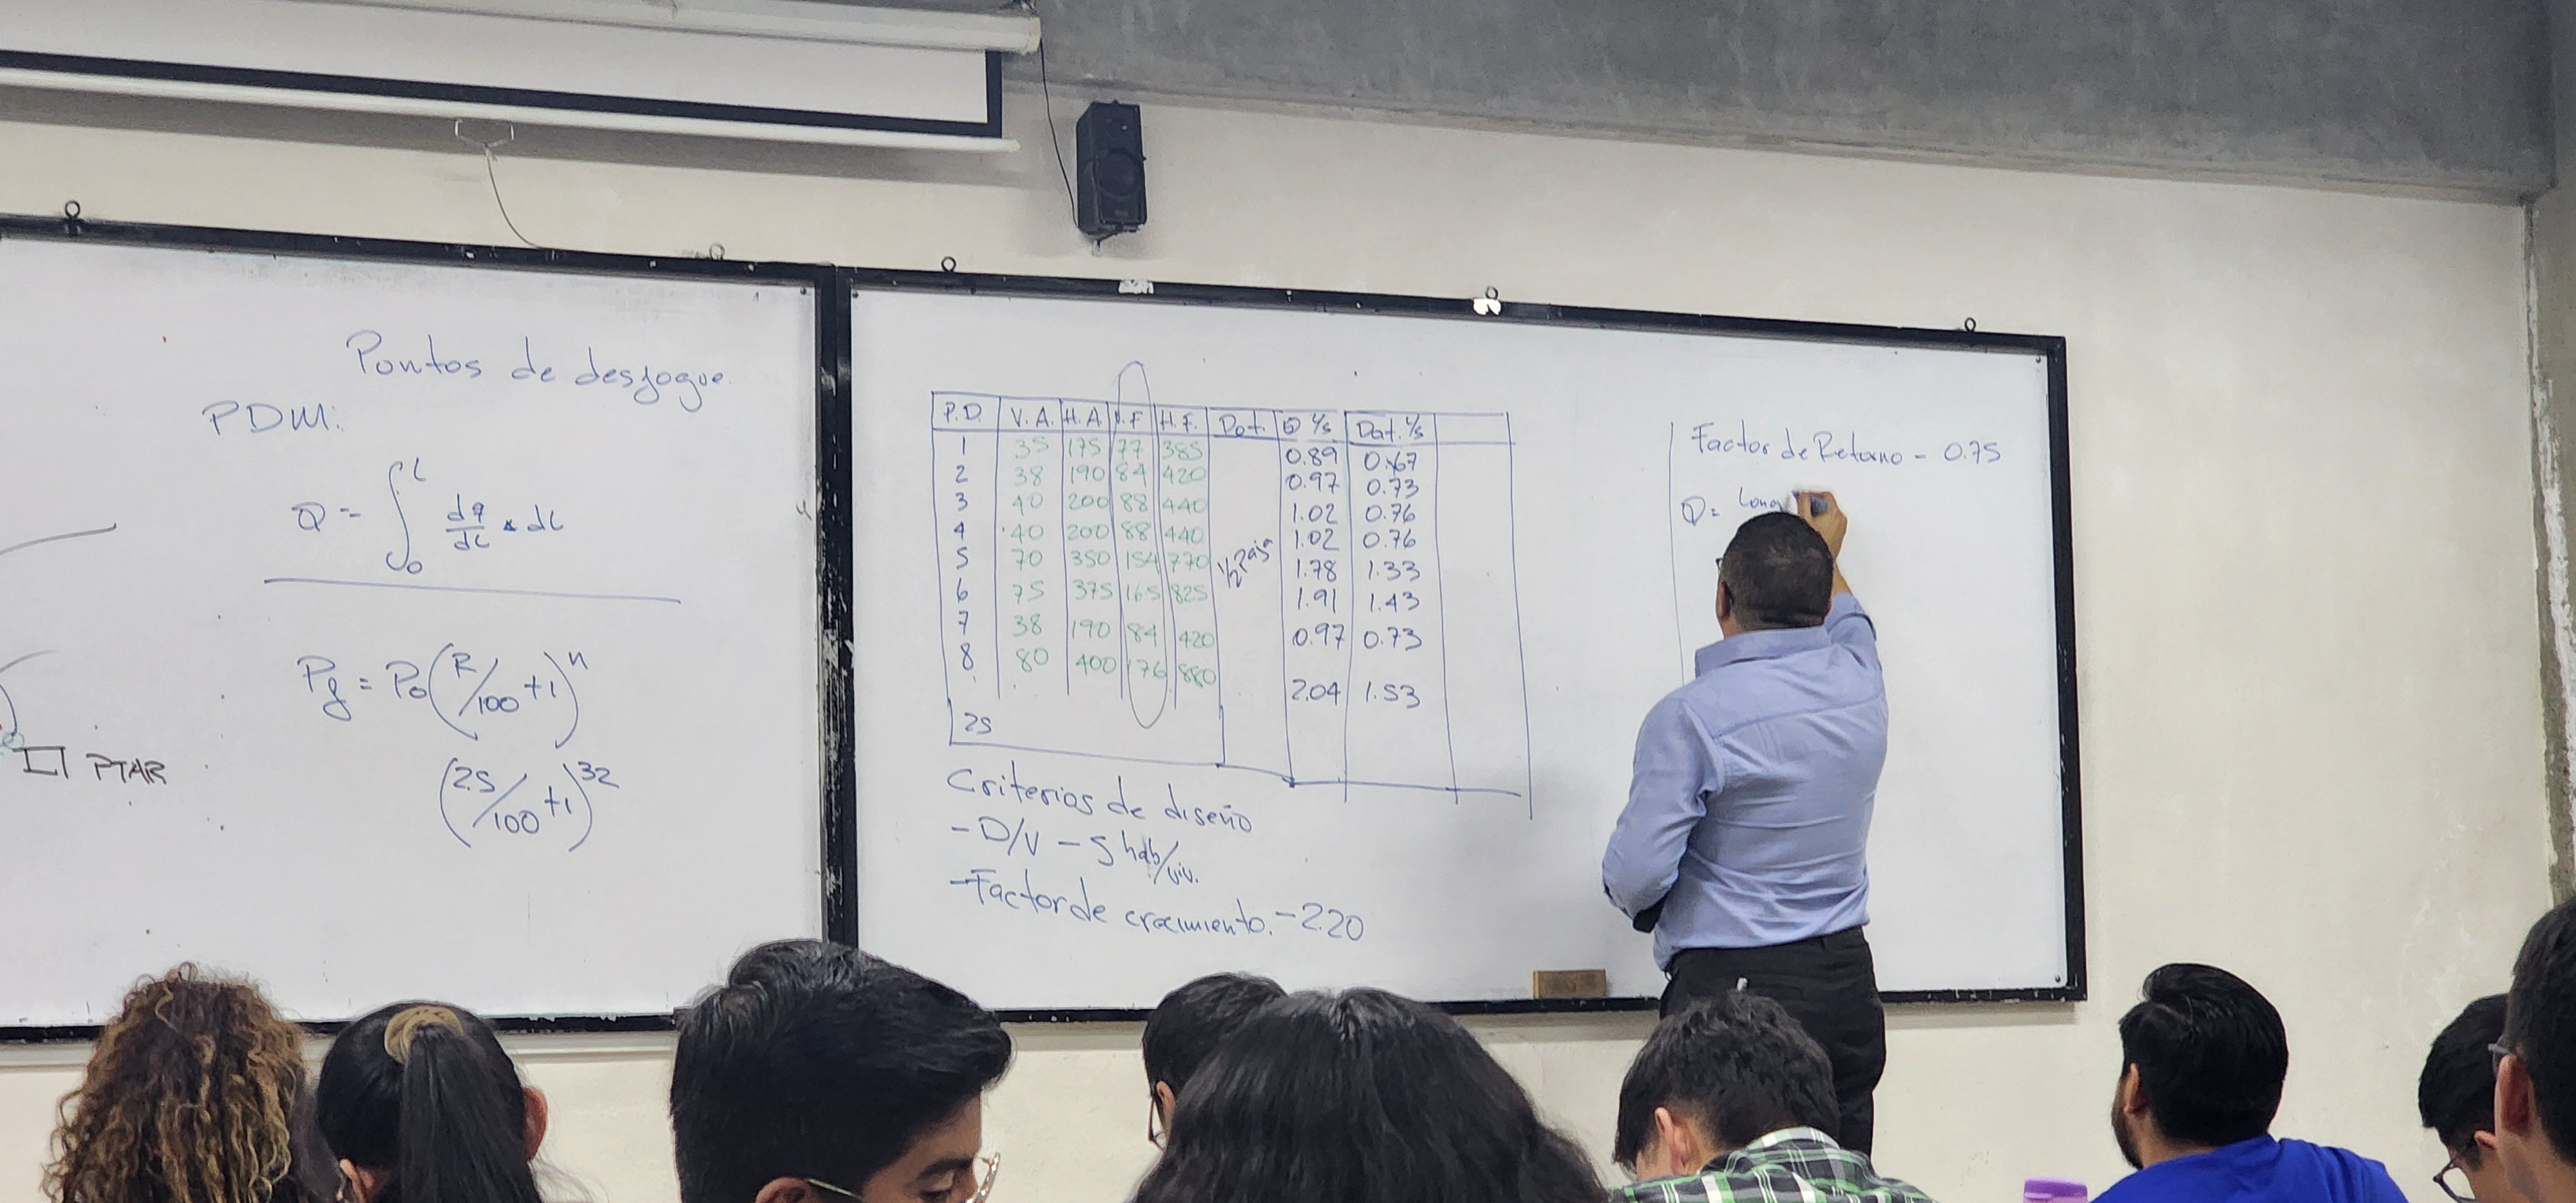 Pontos de desfogue.
PDM:
Q = ∫₀ᴸ dq/dL * dL
Pf = Po (R/100 +1)ⁿ
(2.5/100 +1)³²
PTAR
P.D. V.A. H.A. V.F H.F. Dot. Q l/s Dat. l/s
1 35 175 77 385 0.89 0.67
2 38 190 84 420 0.97 0.73
3 40 200 88 440 1.02 0.76
4 40 200 88 440 1.02 0.76
5 70 350 154 770 1.78 1.33
6 75 375 165 825 1.91 1.43
7 38 190 84 420 0.97 0.73
8 80 400 176 880 2.04 1.53
25
Criterios de diseño
- D/V - 5 hab/viv.
- Factor de crecimiento. - 2.20
Factor de Retorno - 0.75
Q = Long